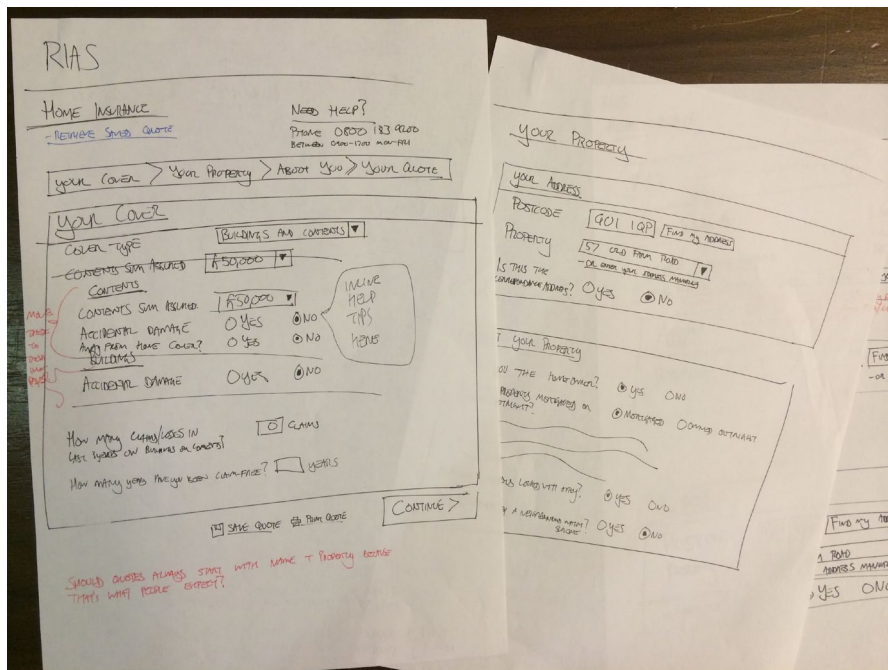 RIAS
HOME INSURANCE
- RETRIEVE SAVED QUOTE
NEED HELP?
PHONE 0800 183 9200
BETWEEN 0900-1700 MON-FRI
YOUR COVER > YOUR PROPERTY > ABOUT YOU > YOUR QUOTE
YOUR COVER
COVER TYPE BUILDINGS AND CONTENTS
CONTENTS SUM ASSURED £50,000
CONTENTS
CONTENTS SUM ASSURED £50,000
ACCIDENTAL DAMAGE YES NO
AWAY FROM HOME COVER? YES NO
BUILDINGS
ACCIDENTAL DAMAGE YES NO
INLINE
HELP
TIPS
HERE
MOVE
THESE
TO
THEIR
OWN
PAGES
HOW MANY CLAIMS/LOSSES IN
LAST YEARS ON BUILDINGS OR CONTENTS? 0 CLAIMS
HOW MANY YEARS HAVE YOU BEEN CLAIM-FREE? YEARS
SAVE QUOTE PRINT QUOTE
CONTINUE >
SHOULD QUOTES ALWAYS START WITH NAME & PROPERTY BECAUSE
THAT'S WHAT PEOPLE EXPECT?
YOUR PROPERTY
YOUR ADDRESS
POSTCODE GU1 1QP FIND MY ADDRESS
PROPERTY 57 OLD FARM ROAD
- OR ENTER YOUR ADDRESS MANUALLY
IS THIS THE
CORRESPONDENCE ADDRESS? YES NO
YOUR PROPERTY
THE HOMEOWNER? YES NO
PROPERTY MORTGAGED OR
OUTRIGHT? MORTGAGED OWNED OUTRIGHT
YES NO
A NEIGHBOURHOOD WATCH
SCHEME YES NO
FIND
- OR
FIND MY
ROAD
ADDRESS
YES NO